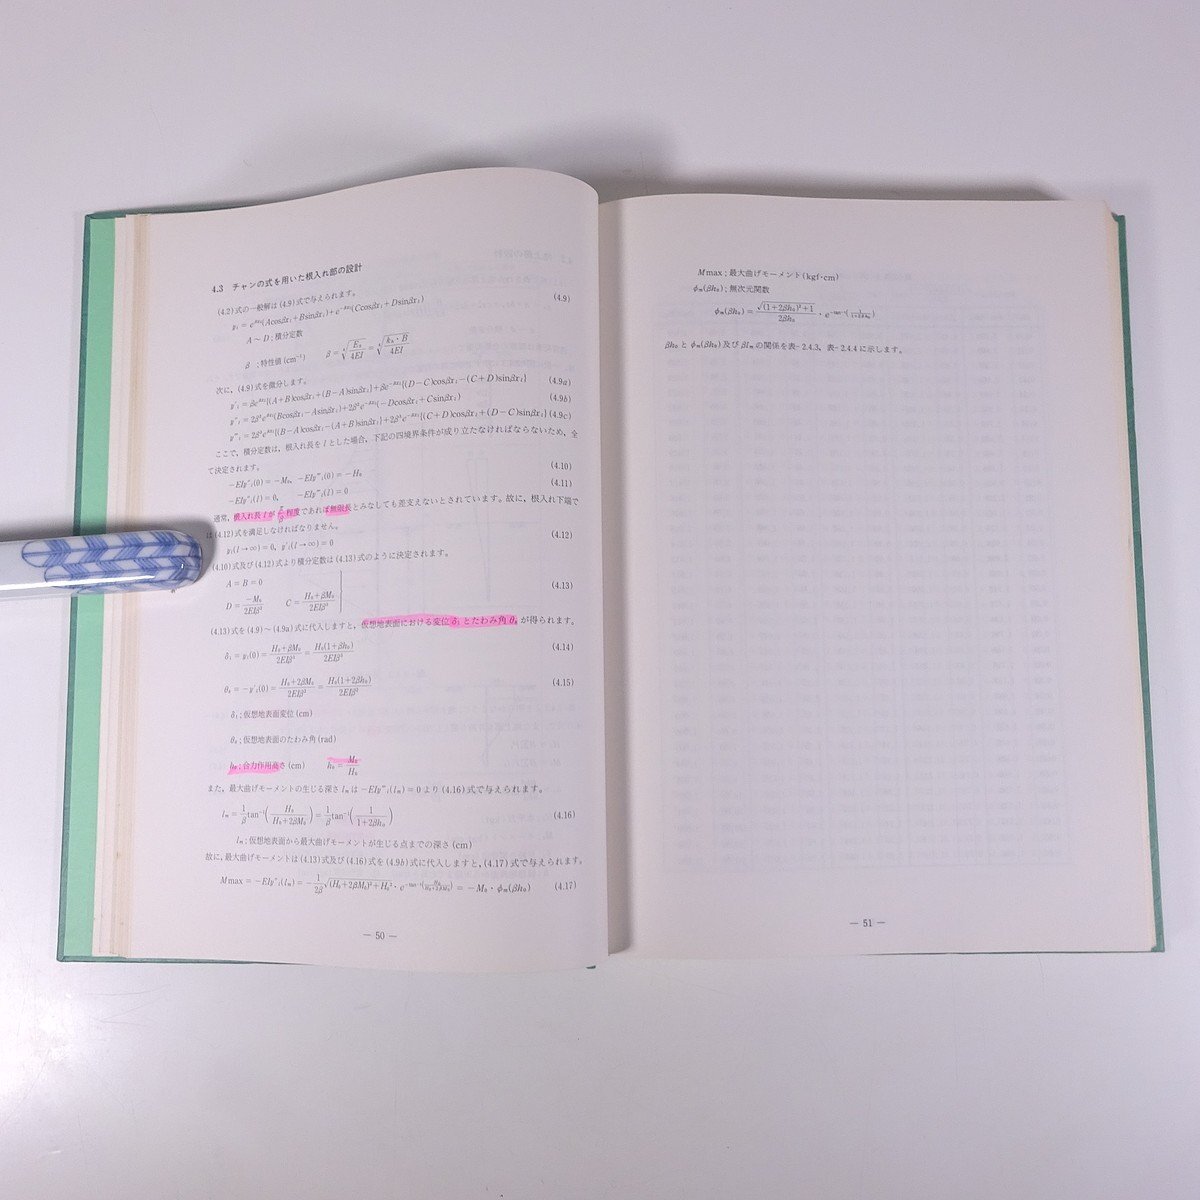 4.3 チャンの式を用いた根入れ部の設計
(4.2)式の一般解は(4.9)式で与えられます。
y₁=e^βx₁(Acosβx₁+Bsinβx₁)+e^-βx₁(Ccosβx₁+Dsinβx₁) (4.9)
A～D:積分定数
β :特性値(cm⁻¹) β=⁴√(Es/4EI)=⁴√(kh・B/4EI)
次に、(4.9)式を微分します。
y'₁=βe^βx₁{(A+B)cosβx₁+(B-A)sinβx₁}+βe^-βx₁{(D-C)cosβx₁-(C+D)sinβx₁} (4.9a)
y"₁=2β²e^βx₁(Bcosβx₁-Asinβx₁)+2β²e^-βx₁(-Dcosβx₁+Csinβx₁) (4.9b)
y"'₁=2β³e^βx₁{(B-A)cosβx₁-(A+B)sinβx₁}+2β³e^-βx₁{(C+D)cosβx₁+(D-C)sinβx₁} (4.9c)
ここで、積分定数は、根入れ長を l とした場合、下記の四境界条件が成り立たなければならないため、全
て決定されます。
-EIy"₁(0)=-M₀, -EIy"'₁(0)=-H₀ (4.10)
-EIy"₁(l)=0, -EIy"'₁(l)=0 (4.11)
通常、根入れ長 l がπ/β程度であれば無限長とみなしても差支えないとされています。故に、根入れ下端で
は(4.12)式を満足しなければなりません。
y₁(l→∞)=0, y'₁(l→∞)=0 (4.12)
(4.10)式及び(4.12)式より積分定数は(4.13)式のように決定されます。
A=B=0
D=-M₀/2EIβ² C=(H₀+βM₀)/2EIβ³ (4.13)
(4.13)式を(4.9)～(4.9a)式に代入しますと、仮想地表面における変位δ₁とたわみ角θ₀が得られます。
δ₁=y₁(0)=(H₀+βM₀)/2EIβ³=H₀(1+βh₀)/2EIβ³ (4.14)
θ₀=-y'₁(0)=(H₀+2βM₀)/2EIβ²=H₀(1+2βh₀)/2EIβ² (4.15)
δ₁:仮想地表面変位(cm)
θ₀:仮想地表面のたわみ角(rad)
h₀:合力作用高さ(cm) h₀=M₀/H₀
また、最大曲げモーメントの生じる深さ lm は -EIy"'₁(lm)=0 より(4.16)式で与えられます。
lm=1/β tan⁻¹(H₀/(H₀+2βM₀))=1/β tan⁻¹(1/(1+2βh₀)) (4.16)
lm:仮想地表面から最大曲げモーメントが生じる点までの深さ(cm)
故に、最大曲げモーメントは(4.13)式及び(4.16)式を(4.9b)式に代入しますと、(4.17)式で与えられます。
Mmax=-EIy"₁(lm)=-1/2β √((H₀+2βM₀)²+H₀²)・e^-tan⁻¹(H₀/(H₀+2βM₀))=-M₀・φm(βh₀) (4.17)
— 50 —
Mmax:最大曲げモーメント(kgf・cm)
φm(βh₀):無次元関数
φm(βh₀)=√((1+2βh₀)²+1)/2βh₀・e^-tan⁻¹(1/(1+2βh₀))
βh₀とφm(βh₀)及びβlmの関係を表-2.4.3、表-2.4.4に示します。
— 51 —